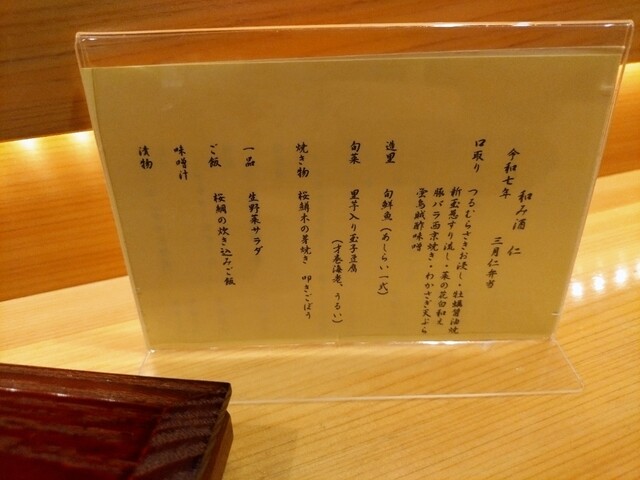 和み酒 仁
令和七年 三月仁弁当
口取り つるむらさきお浸し・牡蠣醤油焼
新玉葱すり流し・菜の花白和え
豚バラ西京焼き・わかさぎ天ぷら
蛍烏賊酢味噌
造里 旬鮮魚(あしらい一式)
旬菜 里芋入り玉子豆腐
(才巻海老、うるい)
焼き物 桜鯛木の芽焼き 叩きごぼう
一品 生野菜サラダ
ご飯 桜鯛の炊き込みご飯
味噌汁
漬物